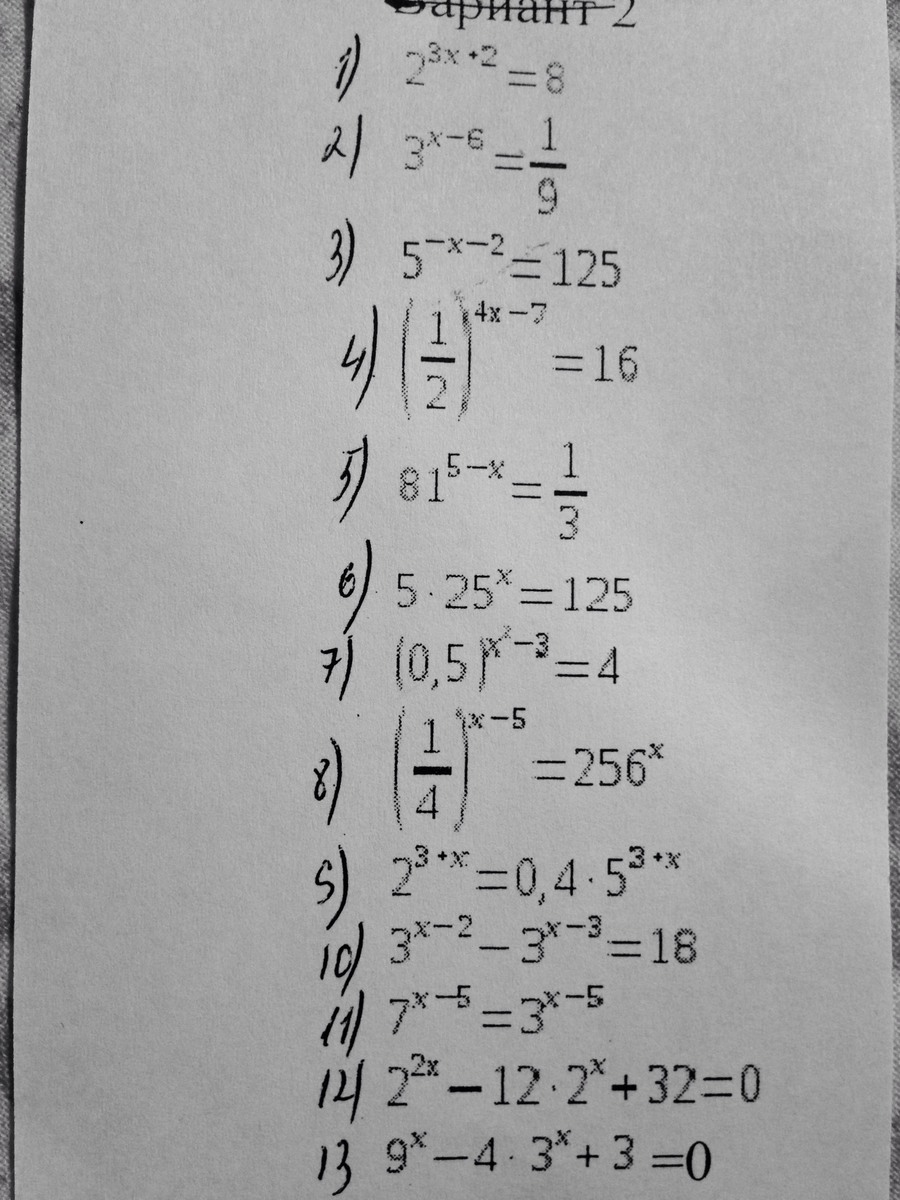 Вариант 2
1) 2^{3x+2} = 8
2) 3^{x-6} = \frac{1}{9}
3) 5^{-x-2} = 125
4) \left(\frac{1}{2}\right)^{4x-7} = 16
5) 81^{5-x} = \frac{1}{3}
6) 5 · 25^{x} = 125
7) (0,5)^{x^{2}-3} = 4
8) \left(\frac{1}{4}\right)^{x-5} = 256^{x}
9) 2^{3+x} = 0,4 · 5^{3+x}
10) 3^{x-2} - 3^{x-3} = 18
11) 7^{x-5} = 3^{x-5}
12) 2^{2x} - 12 · 2^{x} + 32 = 0
13 9^{x} - 4 · 3^{x} + 3 = 0